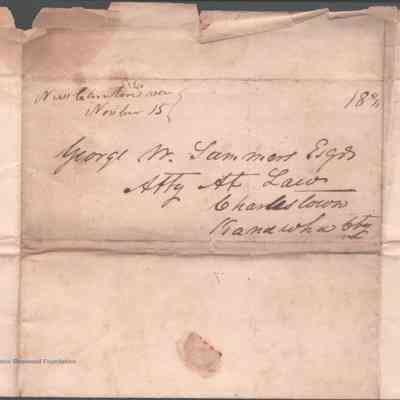 Novber 15
18¾
George W. Summers Esqr
Atty At Law
Charlestown
Kanawha Cty
Foundation